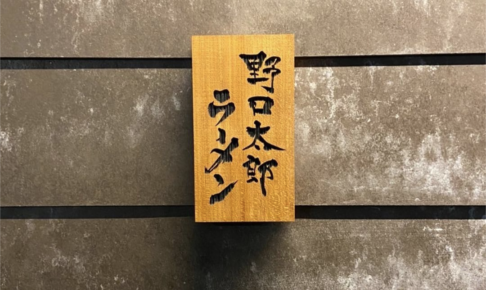 野口太郎
ラーメン